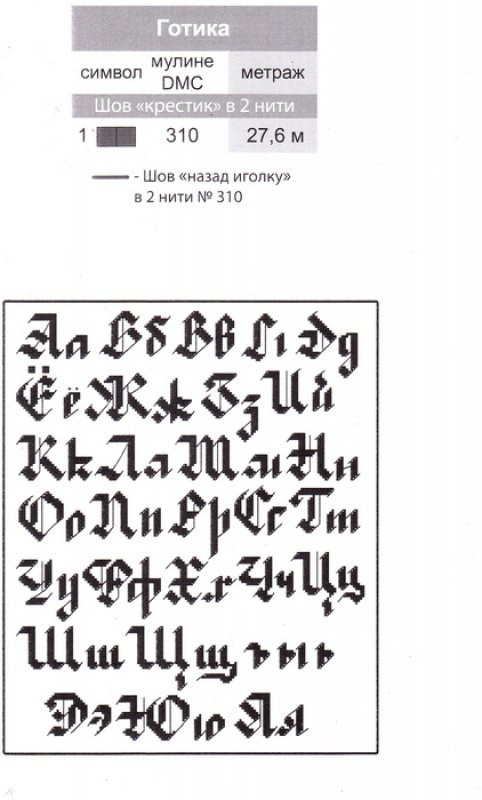 Готика
символ мулине DMC метраж
Шов «крестик» в 2 нити
1 310 27,6 м
- Шов «назад иголку»
в 2 нити № 310
Аа Бб Вв Гг Дд
Ёё Жж Зз Ий
Кк Лл Мм Нн
Оо Пп Рр Сс Тт
Уу Фф Хх Чч Цц
Шш Щщ ъ ы ь
Ээ Юю Яя